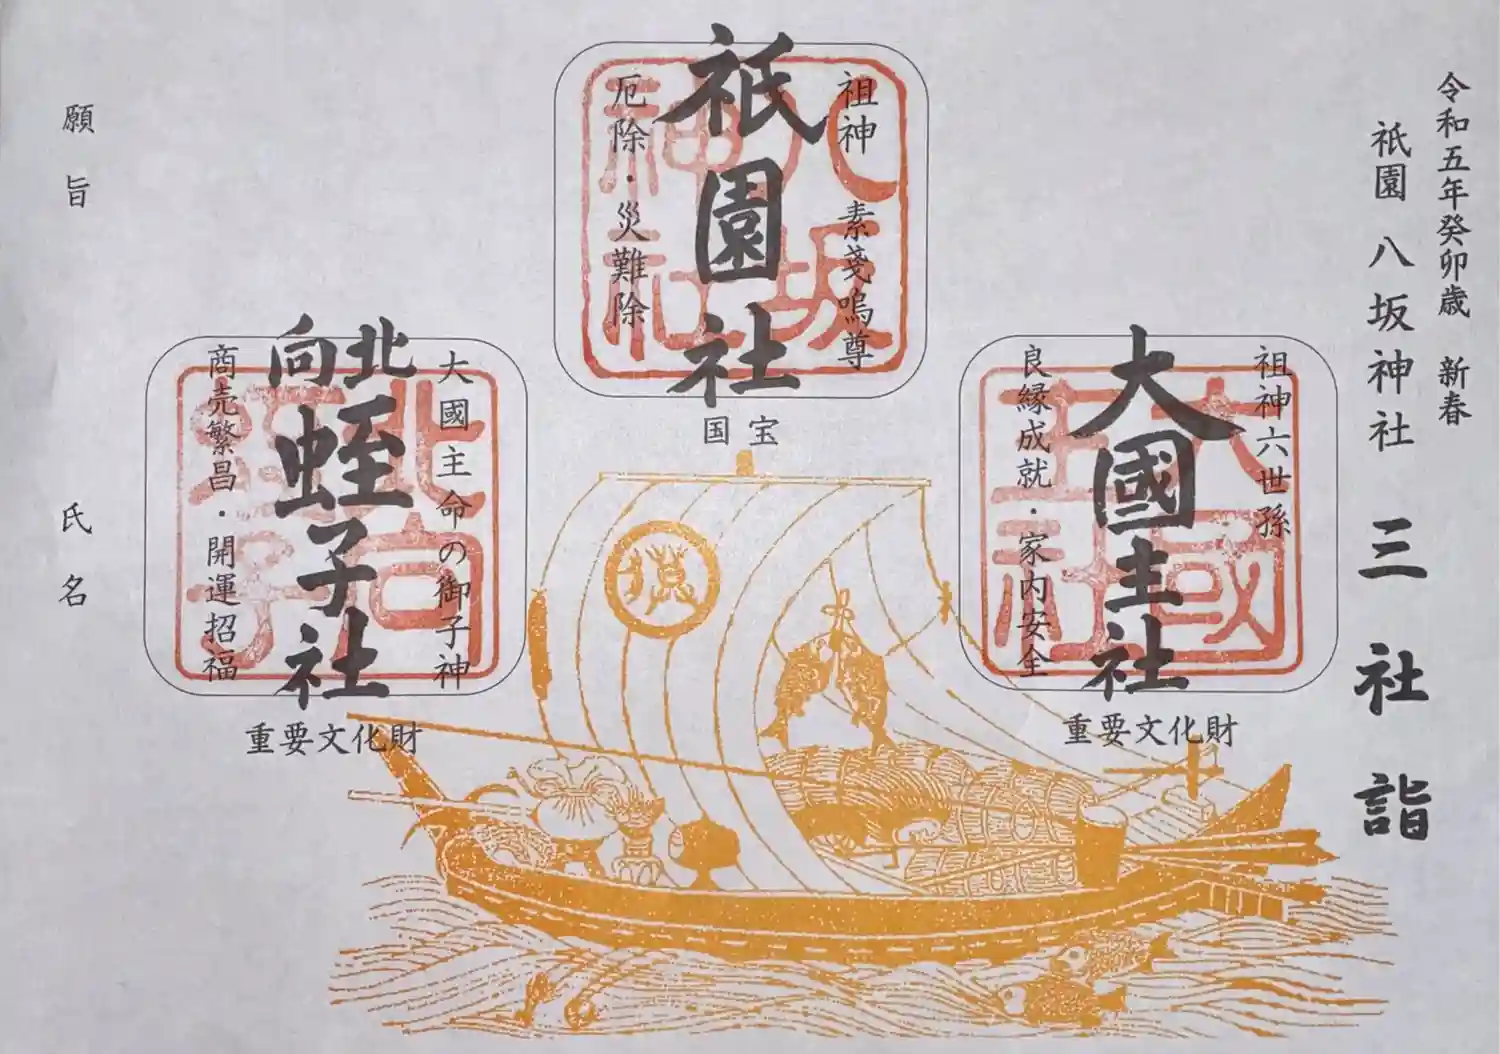 令和五年癸卯歳 新春
祇園 八坂神社 三社詣
祖神六世孫
大國主社
良縁成就・家内安全
大國主社
重要文化財
祖神 素戔嗚尊
祇園社
厄除・災難除
八坂神社
国宝
大國主命の御子神
北向蛭子社
商売繁昌・開運招福
重要文化財
願旨
氏名